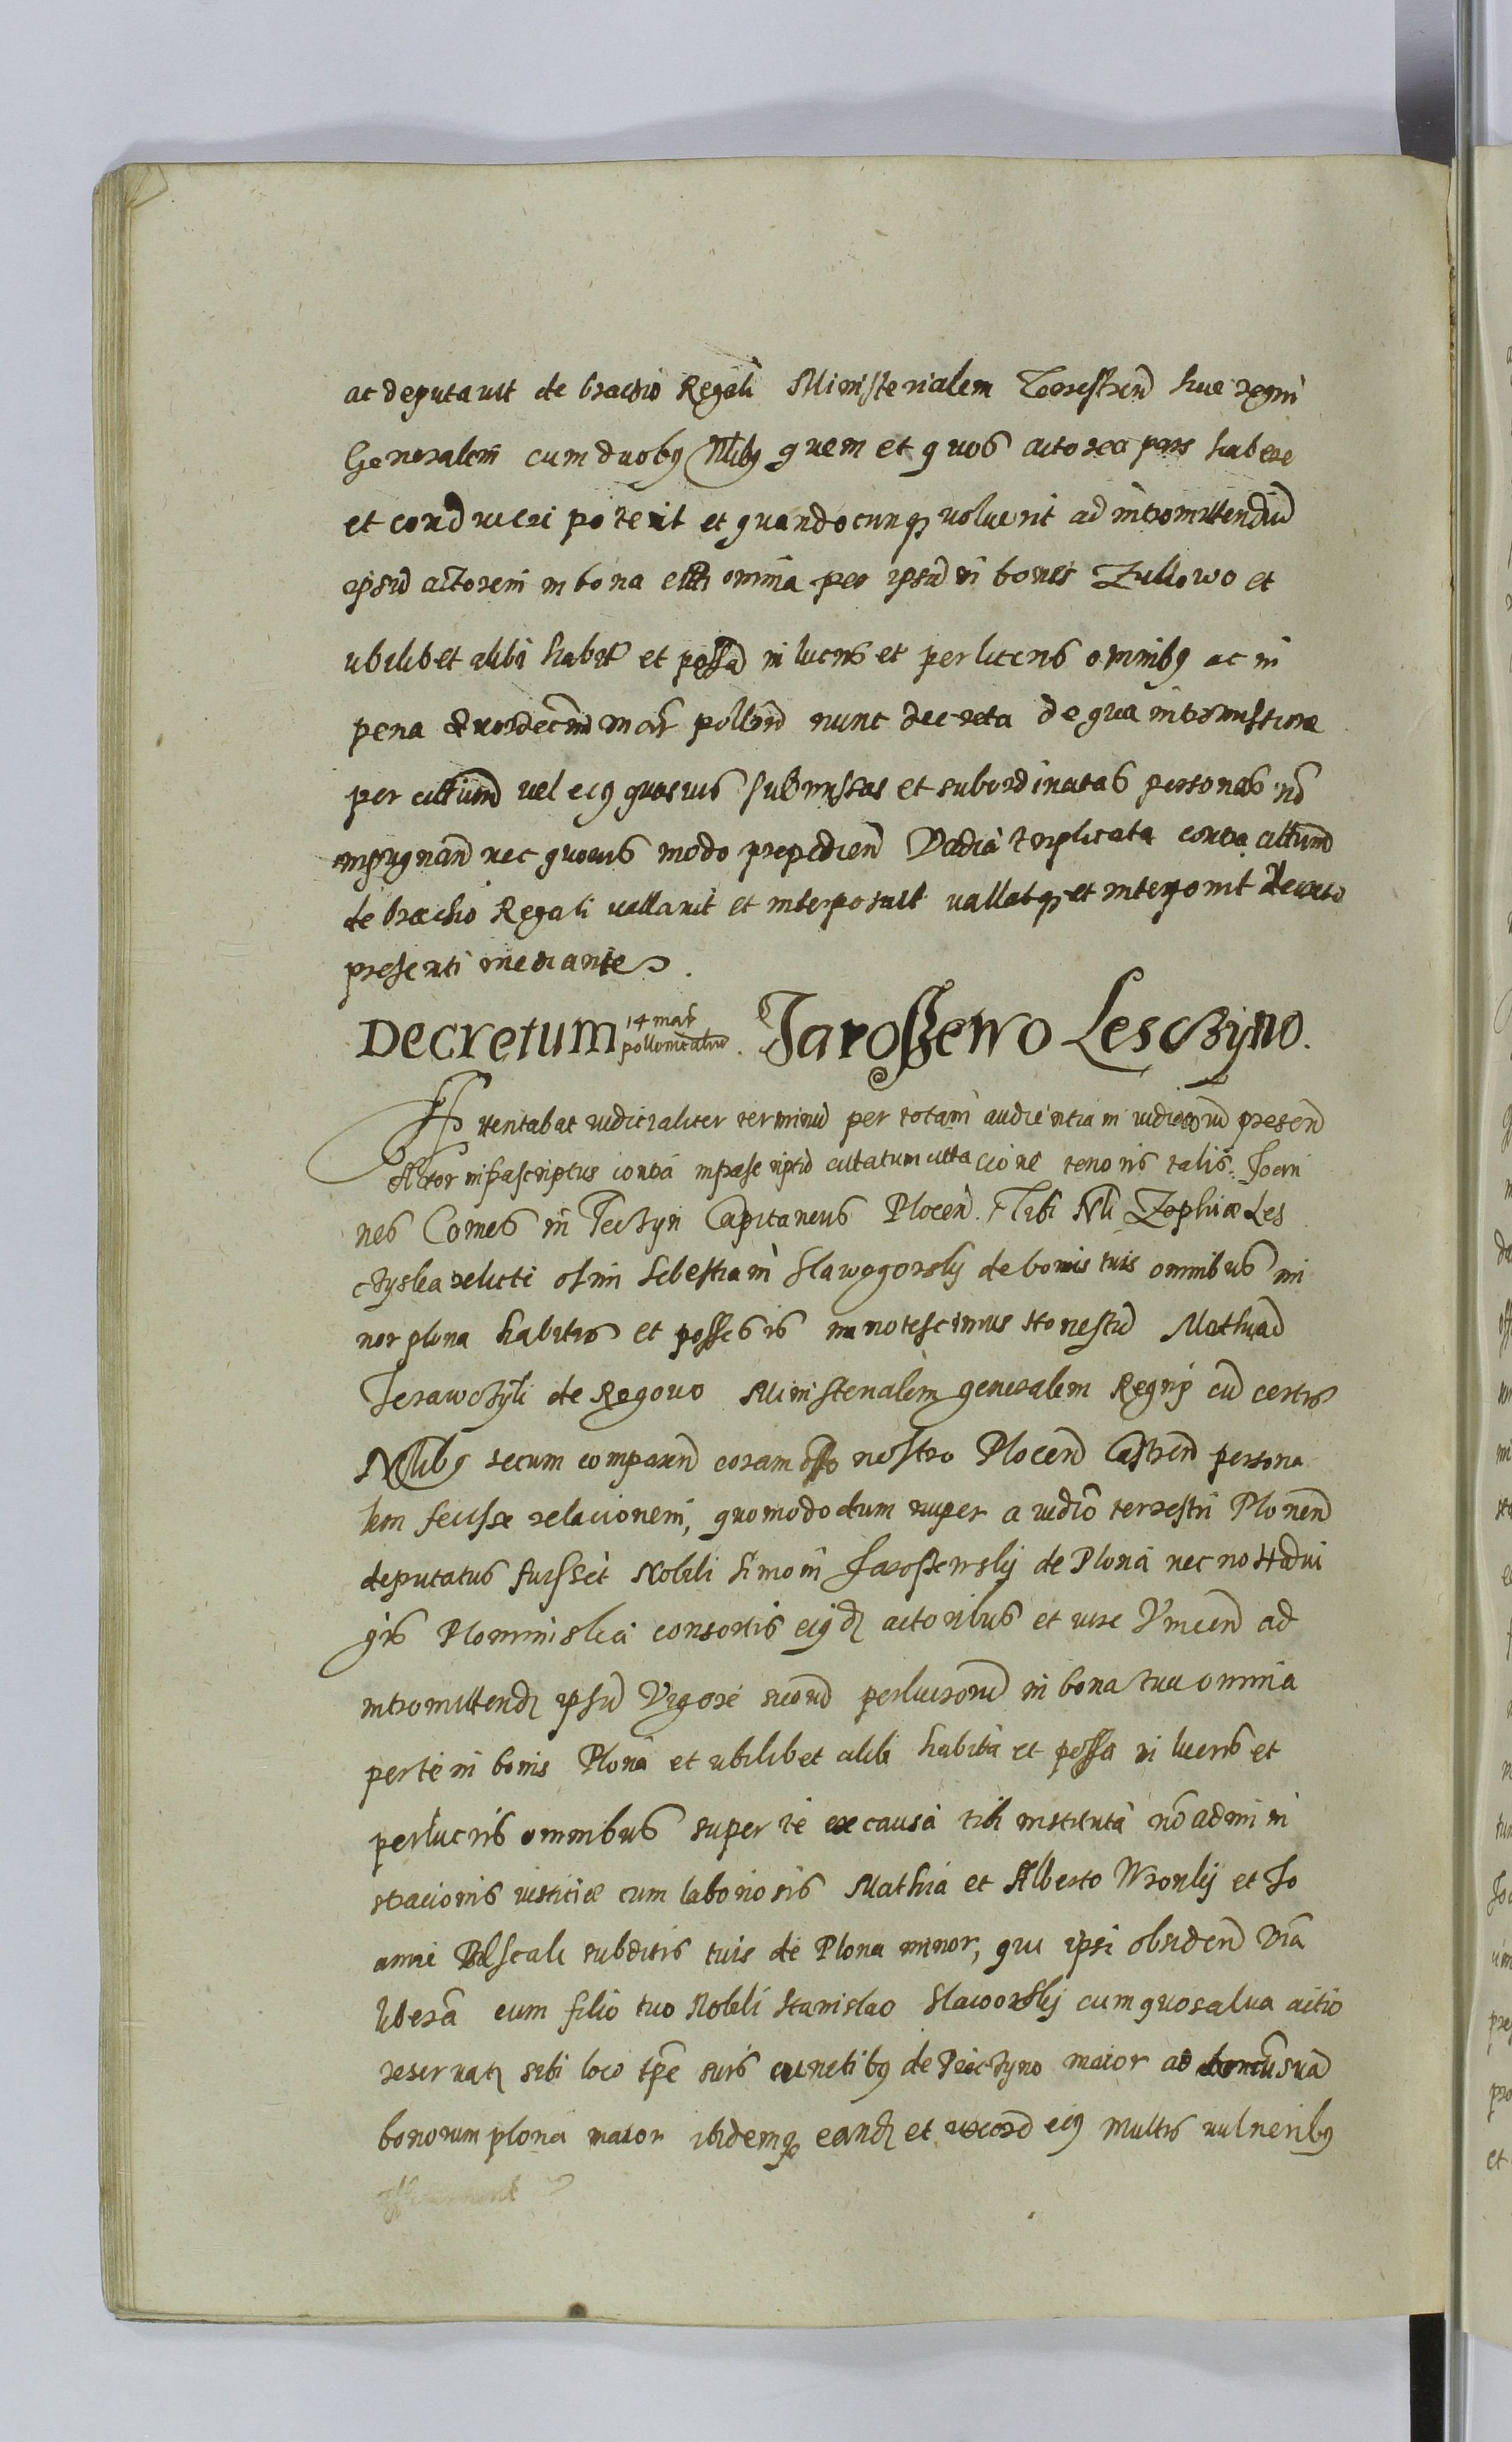 ac deputavit de brachio Regali Ministerialem Terrestren sive regni
Generalem cum duobus Nlibus quem et quos actorea pars habere
et conducere poterit et quandocunq voluerit ad intromittendū
ipsū actorem in bona eius omnia per ipsū in bonis Zullowo et
ubilibet alibi habit et possā in lucris et perlucris omnibus ac in
pena quordecim mar pollon nunc decreta de qua intromissione
per citatum vel eius quosvis submissas et subordinatas personas nō
impugnan nec quovis modo prepedien Vadia triplicata contra citatum
de brachio Regali vallavit et interposuit vallatq et interponit decreto
presenti mediante.
Decretum 14 mar pollonicaliū. Jaroszewo Lesczyno.
Attentabat iudicialiter terminū per totam audientiam iudiciorū presen
Actor infrascriptus contra infrascriptū citatum citacione tenoris talis. Joan
nes Comes in Teczyn Capitaneus Plocen. Tibi Nli Zophiæ Les
czyska relicti olim Sebestiani Slawogorsky de bonis tuis omnibus mi
nor plona habitis et possessis innotescimus Honestū Mathiā
Jerawczyk de Rogovo Ministerialem generalem Regni cū certis
Nlibus secum comparen coram offo nostro Plocen Castren persona
lem fecisse relacionem, quomodo dum nuper a iudio terrestri Plonen
deputatus fuisset Nobili Simoni Jaroszewsky de Plona nec no Hedvi
gis Plominska consortis eiusd actoribus et iure Vincen ad
intromittend ipsū Vigore suorū perlucrorū in bona tua omnia
per te in bonis Plona et ubilibet alibi habita et possa in lucris et
perlucris omnibus super te ex causa tibi instituta nō admini
stracionis iusticiæ cum laboriosis Mathia et Alberto Wronky et Jo
anne subditis tuis de Plona minor, qui ipsi obsiden Viā
liberā cum filio tuo Nobili Stanislao Slaworsky cum quo salva actio
reservat sibi loco tpe suis euntibus de maior ad domū suā
bonorum plona maior ibidemq eand et uxorē eius multis vulneribus